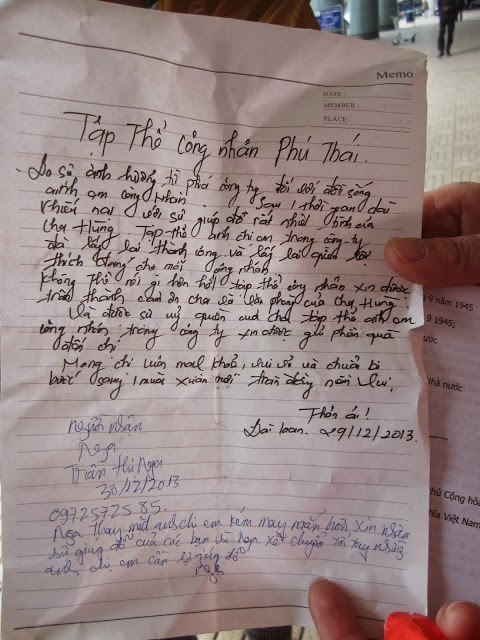 Memo
DATE :
MEMBER :
PLACE :
Tập Thể Công nhân Phú Thái.
Do sự ảnh hưởng từ phá công ty đối với đời sống
anh em công nhân. Sau 1 thời gian dài
khiếu nại với sự giúp đỡ rất nhiệt tình của
Cha Hùng Tập thể anh chị em trong công ty
đã lấy lại thành công và lấy lại quyền lợi
thích đáng cho mỗi công nhân
Không thể nói gì hơn hết tập thể công nhân xin được
trân thành cảm ơn cha và văn phòng của Cha Hùng.
Và được sự uỷ quyền của cha tập thể anh em
công nhân trong công ty xin được gửi phần quà
đến chị
Mong chị luôn mạnh khoẻ, vui vẻ và chuẩn bị
bước sang 1 mùa xuân mới tràn đầy niềm vui.
Thân ái!
Đài loan. 29/12/2013.
Người nhận
Nga
Trần Thị Nga
30/12/2013
0972572585.
Nga thay mặt anh chị em kém may mắn hơn xin nhận
sự giúp đỡ của các bạn và Nga sẽ chuyển tới tay những
anh chị em cần sự giúp đỡ
Nga
9 năm 1945
9 1945;
nước
nhà nước
chủ Cộng hòa
nghĩa Việt Nam